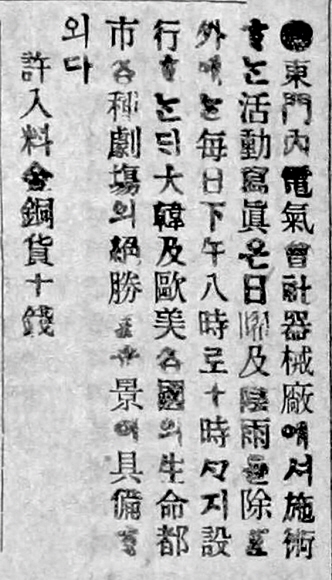 ●東門內電氣會社器械廠에셔施術
ᄒᆞ는活動寫眞은日曜及陰雨를除ᄒᆞᆫ
外에는每日下午八時로十時ᄭᆞ지設
行ᄒᆞ는ᄃᆡ大韓及歐美各國의生命都
市各種劇場의絶勝景이具備ᄒᆞ
외다
許入料金銅貨十錢